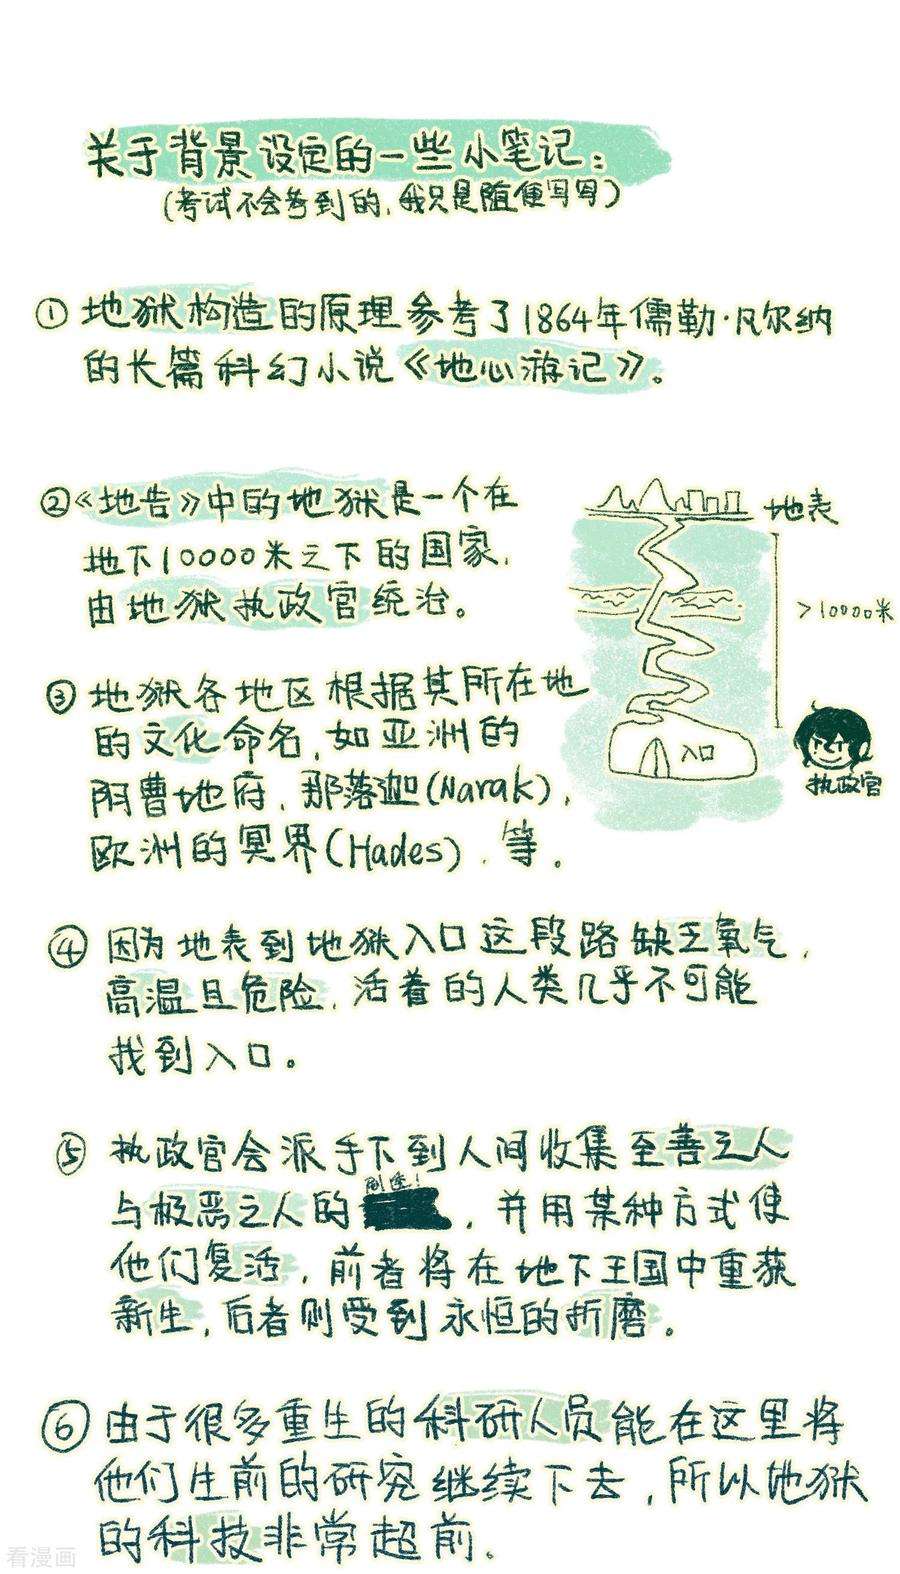 关于背景设定的一些小笔记：
（考试不会考到的，我只是随便写写）
① 地狱构造的原理参考了1864年儒勒·凡尔纳
的长篇科幻小说《地心游记》。
②《地告》中的地狱是一个在
地下10000米之下的国家，
由地狱执政官统治。
地表
>10000米
入口
执政官
③ 地狱各地区根据其所在地
的文化命名，如亚洲的
阴曹地府，那落迦（Narak），
欧洲的冥界（Hades），等。
④ 因为地表到地狱入口这段路缺乏氧气，
高温且危险，活着的人类几乎不可能
找到入口。
⑤ 执政官会派手下到人间收集至善之人
剧透！
与极恶之人的，并用某种方式使
他们复活，前者将在地下王国中重获
新生，后者则受到永恒的折磨。
⑥ 由于很多重生的科研人员能在这里将
他们生前的研究继续下去，所以地狱
的科技非常超前。
看漫画